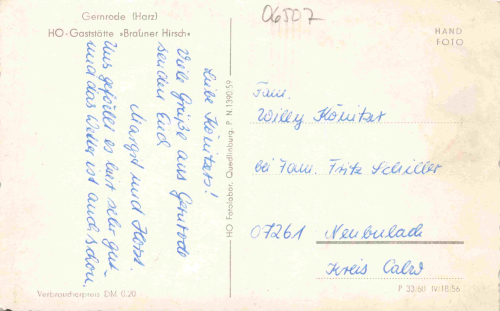 Gernrode (Harz)
HO-Gaststätte »Brauner Hirsch«
Liebe Könitzers!
Viele Grüße aus Gernrode
senden Euch
Margot und Horst.
Uns gefällt es hier sehr gut –
und das Wetter ist auch schön.
Verbraucherpreis DM 0.20
HO Fotolabor, Quedlinburg, P. N. 1390/59
06507
HAND
FOTO
Fam.
Willy Könitzer
bei Fam. Fritz Schiller
07261 Neubulach
Kreis Calw
P 33/611 IV/18/56